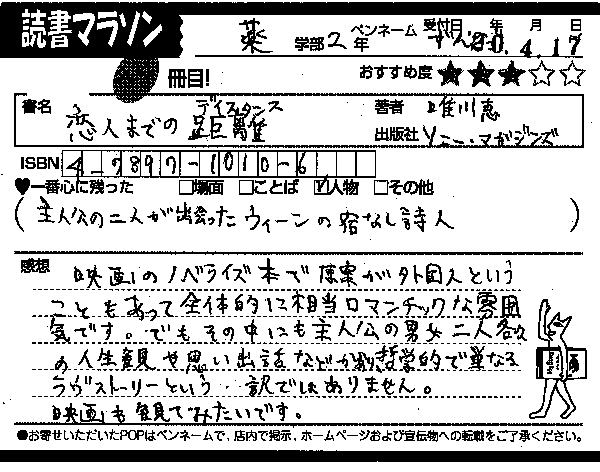 読書マラソン
薬 学部2年 ペンネーム 受付日 年 月 日
0.4.17
冊目! おすすめ度 ★★★☆☆
書名 恋人までの距離 ディスタンス 著者 唯川恵
出版社 ソニー・マガジンズ
ISBN 4-7897-1010-6
♥一番心に残った □場面 □ことば ☑人物 □その他
(主人公の二人が出会ったウィーンの宿なし詩人)
感想 映画のノベライズ本で原案が外国人という
こともあって全体的に相当ロマンチックな雰囲
気です。でもその中にも主人公の男女二人各々
の人生観や思い出話などが哲学的で単なる
ラヴストーリーという訳ではありません。
映画も観てみたいです。
●お寄せいただいたPOPはペンネームで、店内で掲示、ホームページおよび宣伝物への転載をご了承ください。